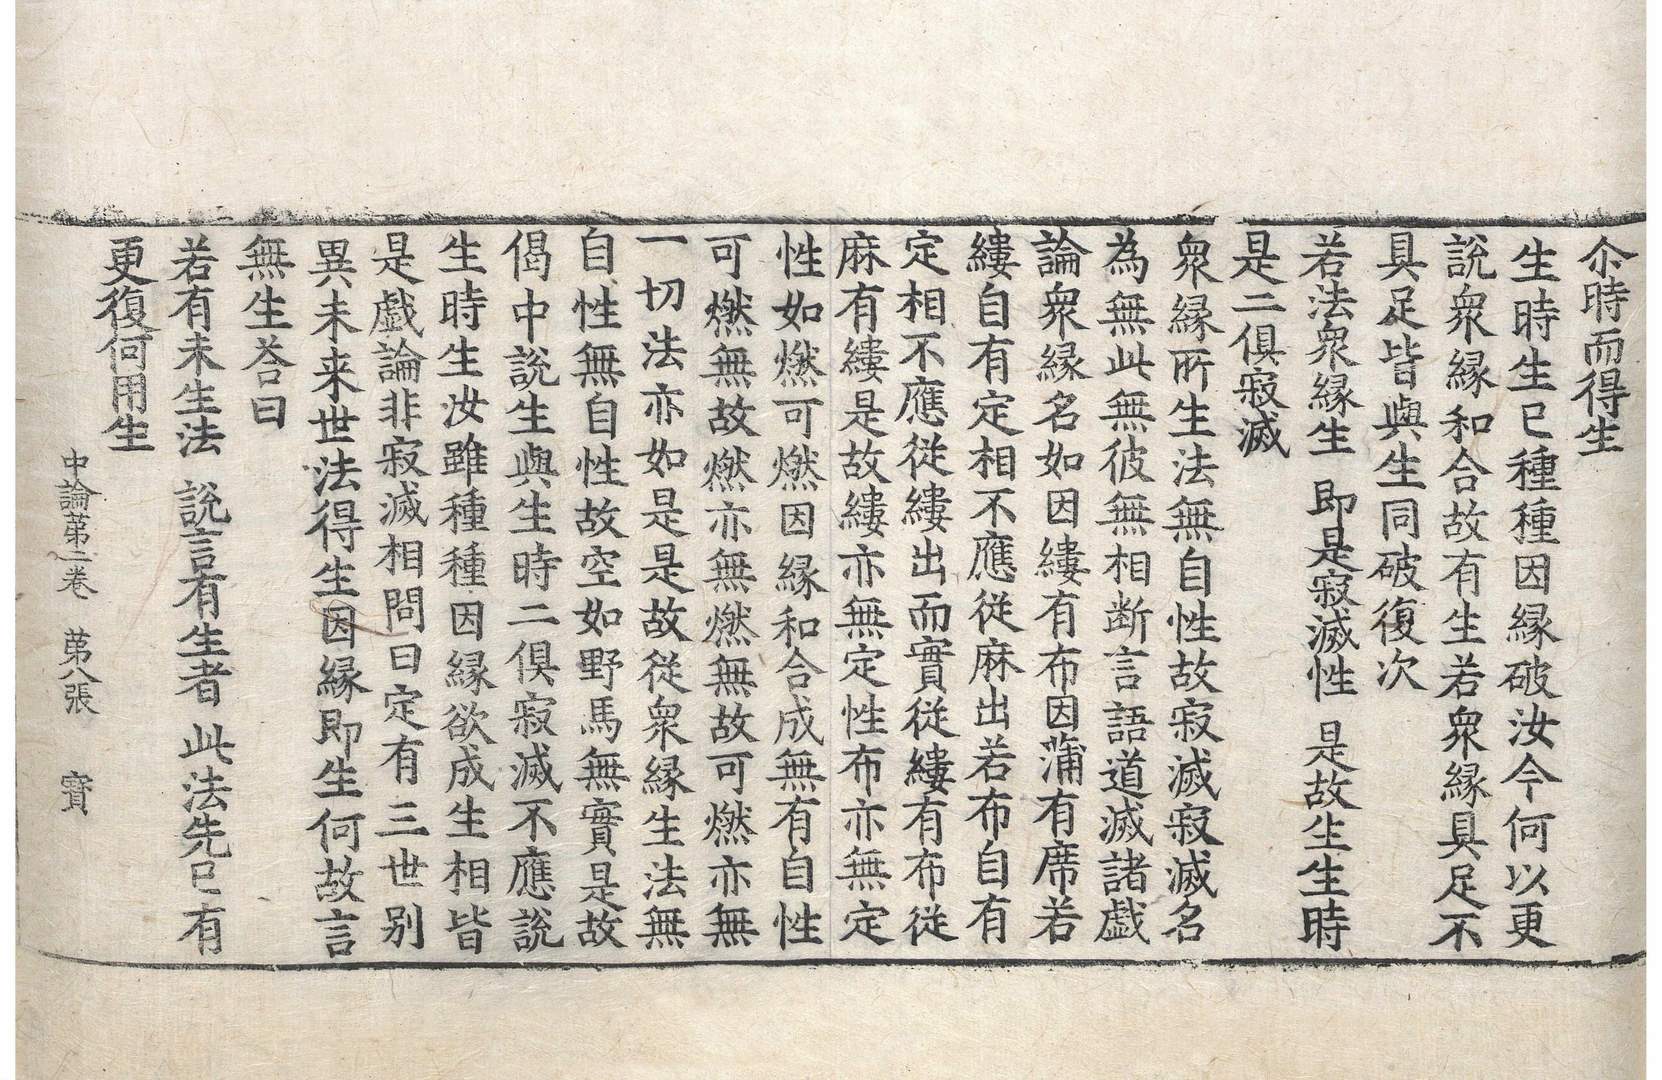 尒時而得生
生時生已種種因縁破汝今何以更
說衆縁和合故有生若衆縁具足不
具足皆與生同破復次
若法衆縁生 即是寂滅性 是故生生時
是二俱寂滅
衆縁所生法無自性故寂滅寂滅名
為無此無彼無相斷言語道滅諸戲
論衆縁名如因縷有布因蒲有席若
縷自有定相不應從麻出若布自有
定相不應從縷出而實從縷有布從
麻有縷是故縷亦無定性布亦無定
性如燃可燃因縁和合成無有自性
可燃無故燃亦無燃無故可燃亦無
一切法亦如是是故從衆縁生法無
自性無自性故空如野馬無實是故
偈中說生與生時二俱寂滅不應說
生時生汝雖種種因縁欲成生相皆
是戲論非寂滅相問曰定有三世別
異未来世法得生因縁即生何故言
無生荅曰
若有未生法 說言有生者 此法先已有
更復何用生
中論第二卷 第八張 寳